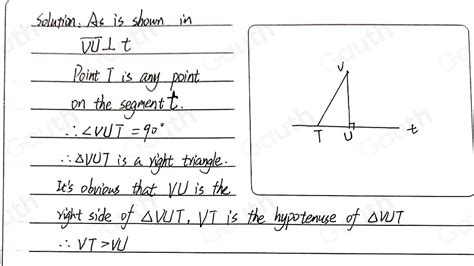 Solution: As is shown in
VU⊥t
Point T is any point
on the segment t.
∴∠VUT=90°
∴△VUT is a right triangle.
It's obvious that VU is the
right side of △VUT, VT is the hypotenuse of △VUT
∴VT>VU
V
T U t
Gauth